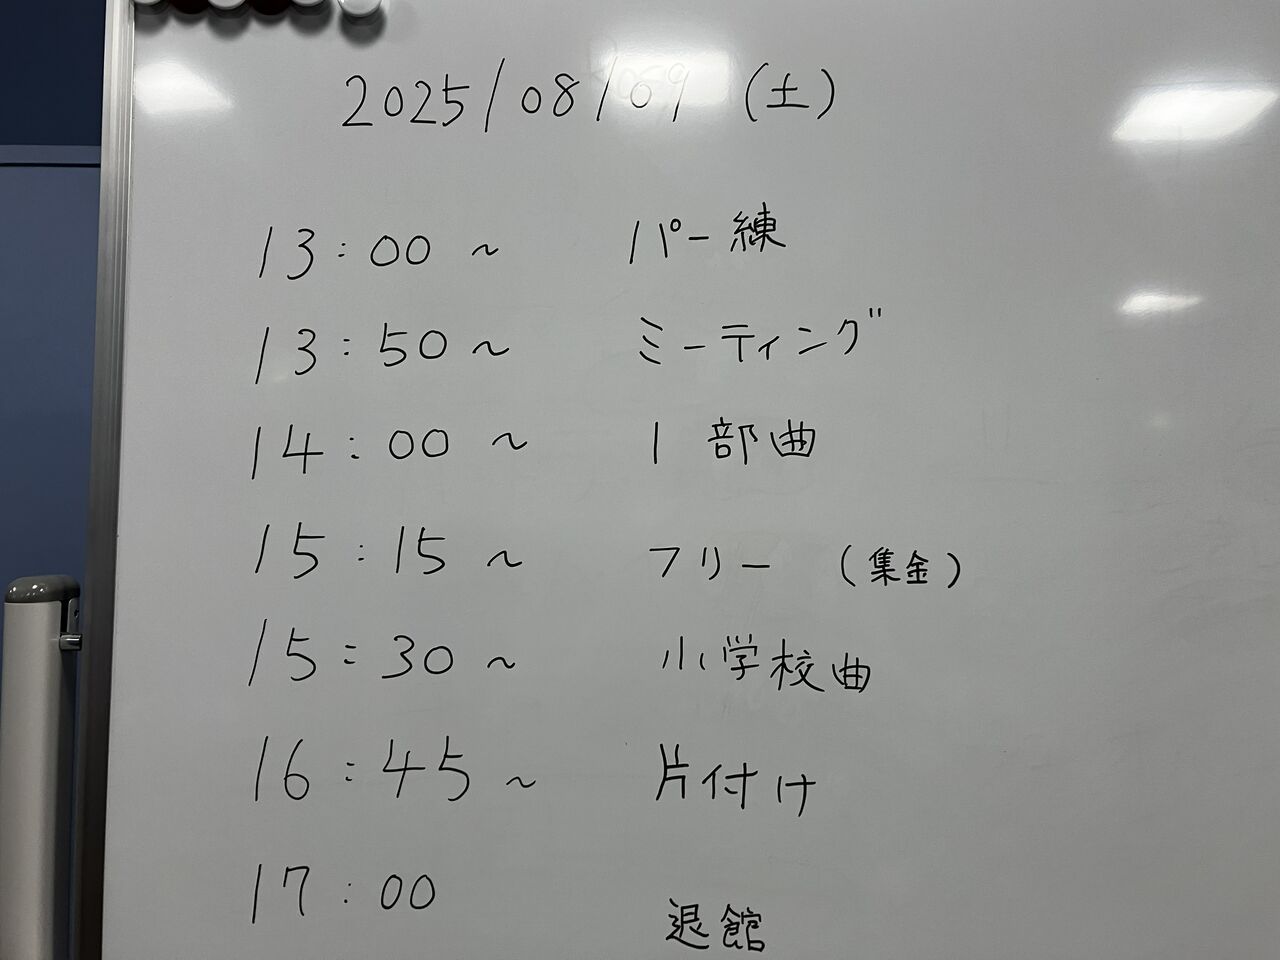 2025/08/09 (土)
13:00～ パー練
13:50～ ミーティング
14:00～ 1部曲
15:15～ フリー (集金)
15:30～ 小学校曲
16:45～ 片付け
17:00 退館